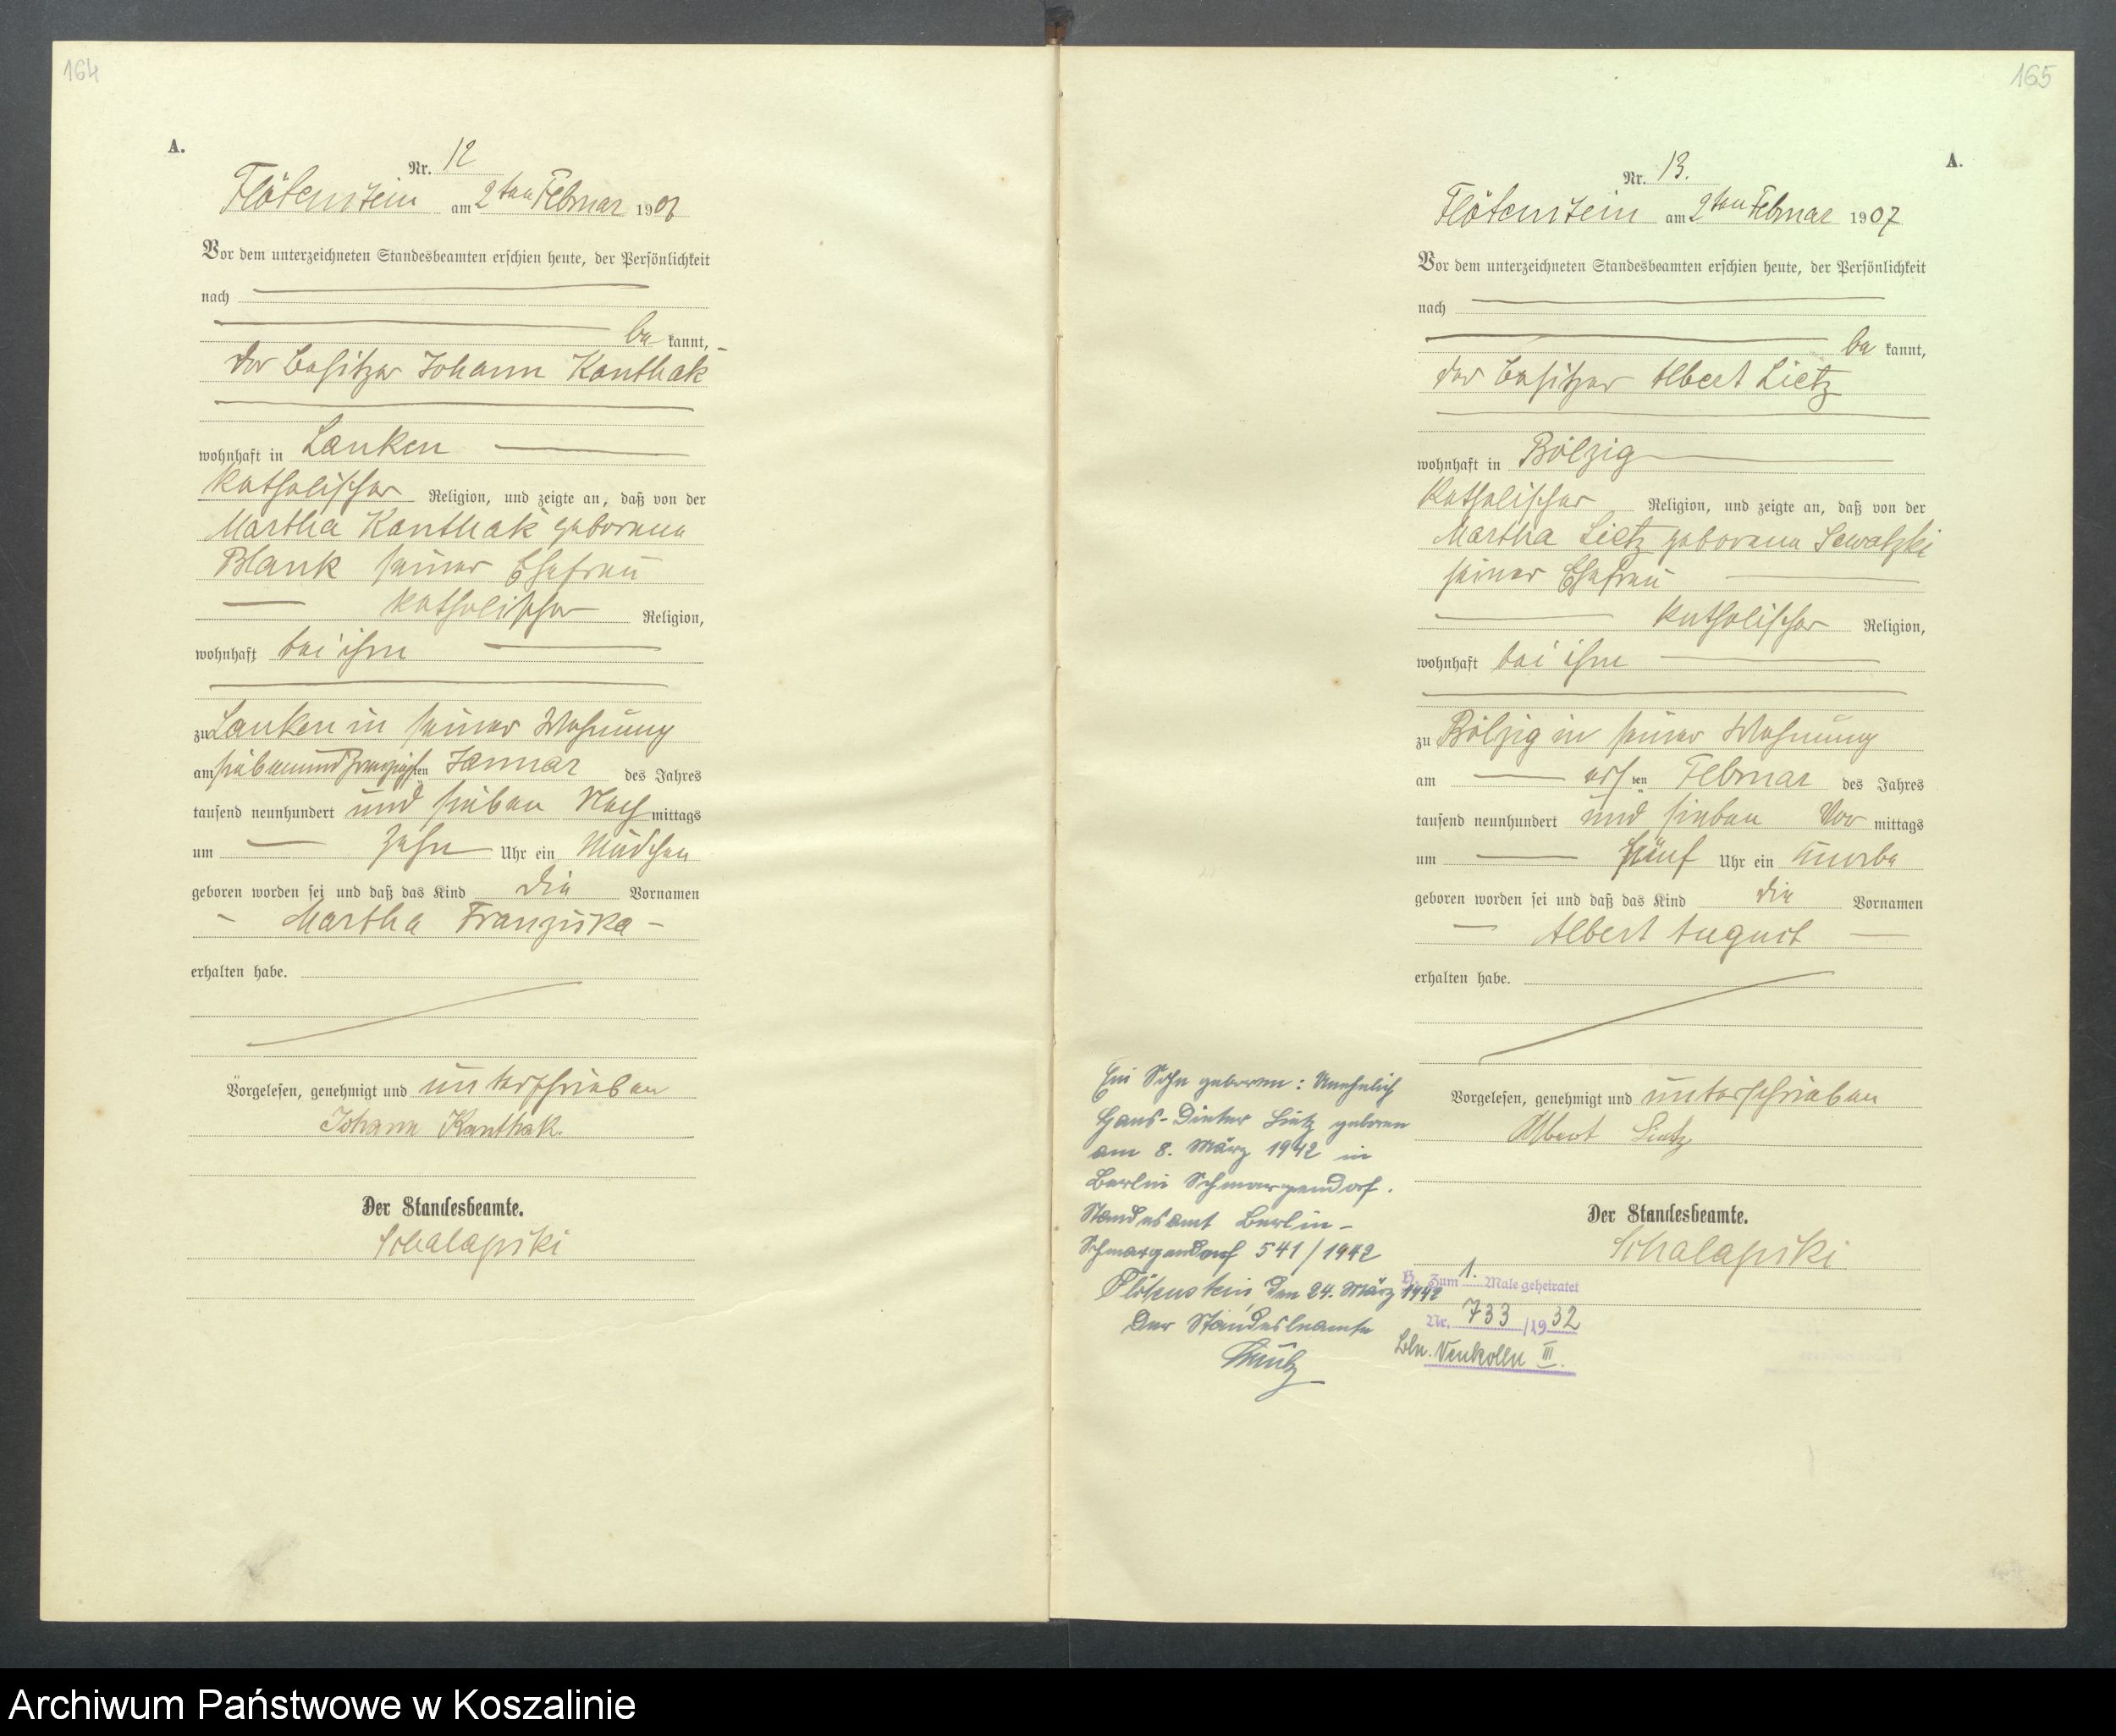 164
A.
Nr. 12
Flötenstein am 2ten Februar 1907
Vor dem unterzeichneten Standesbeamten erschien heute, der Persönlichkeit
nach
be kannt,
der Besitzer Johann Kanthak
wohnhaft in Lanken
katholischer Religion, und zeigte an, daß von der
Martha Kanthak geborene
Blank seiner Ehefrau
katholischer Religion,
wohnhaft bei ihm
zu Lanken in seiner Wohnung
am siebenundzwanzigsten Januar des Jahres
tausend neunhundert und sieben Nach mittags
um zehn Uhr ein Mädchen
geboren worden sei und daß das Kind die Vornamen
Martha Franziska
erhalten habe.
Vorgelesen, genehmigt und unterschrieben
Johann Kanthak.
Der Standesbeamte.
Schalapski
165
A.
Nr. 13.
Flötenstein am 2ten Februar 1907
Vor dem unterzeichneten Standesbeamten erschien heute, der Persönlichkeit
nach
be kannt,
der Besitzer Albert Lietz
wohnhaft in Bölzig
katholischer Religion, und zeigte an, daß von der
Martha Lietz geborene Sawatzki
seiner Ehefrau
katholischer Religion,
wohnhaft bei ihm
zu Bölzig in seiner Wohnung
am ersten Februar des Jahres
tausend neunhundert und sieben Vor mittags
um fünf Uhr ein Knabe
geboren worden sei und daß das Kind die Vornamen
Albert August
erhalten habe.
Vorgelesen, genehmigt und unterschrieben
Albert Lietz
Der Standesbeamte.
Schalapski
Ein Sohn geboren: Unehelich
Hans-Dieter Lietz geboren
am 8. März 1942 in
Berlin Schmargendorf.
Standesamt Berlin-
Schmargendorf 541/1942
Flötenstein, den 24. März 1942
Der Standesbeamte
H. Zum 1. Male geheiratet
Nr. 733/1932
Bln. Neukölln III.
Archiwum Państwowe w Koszalinie